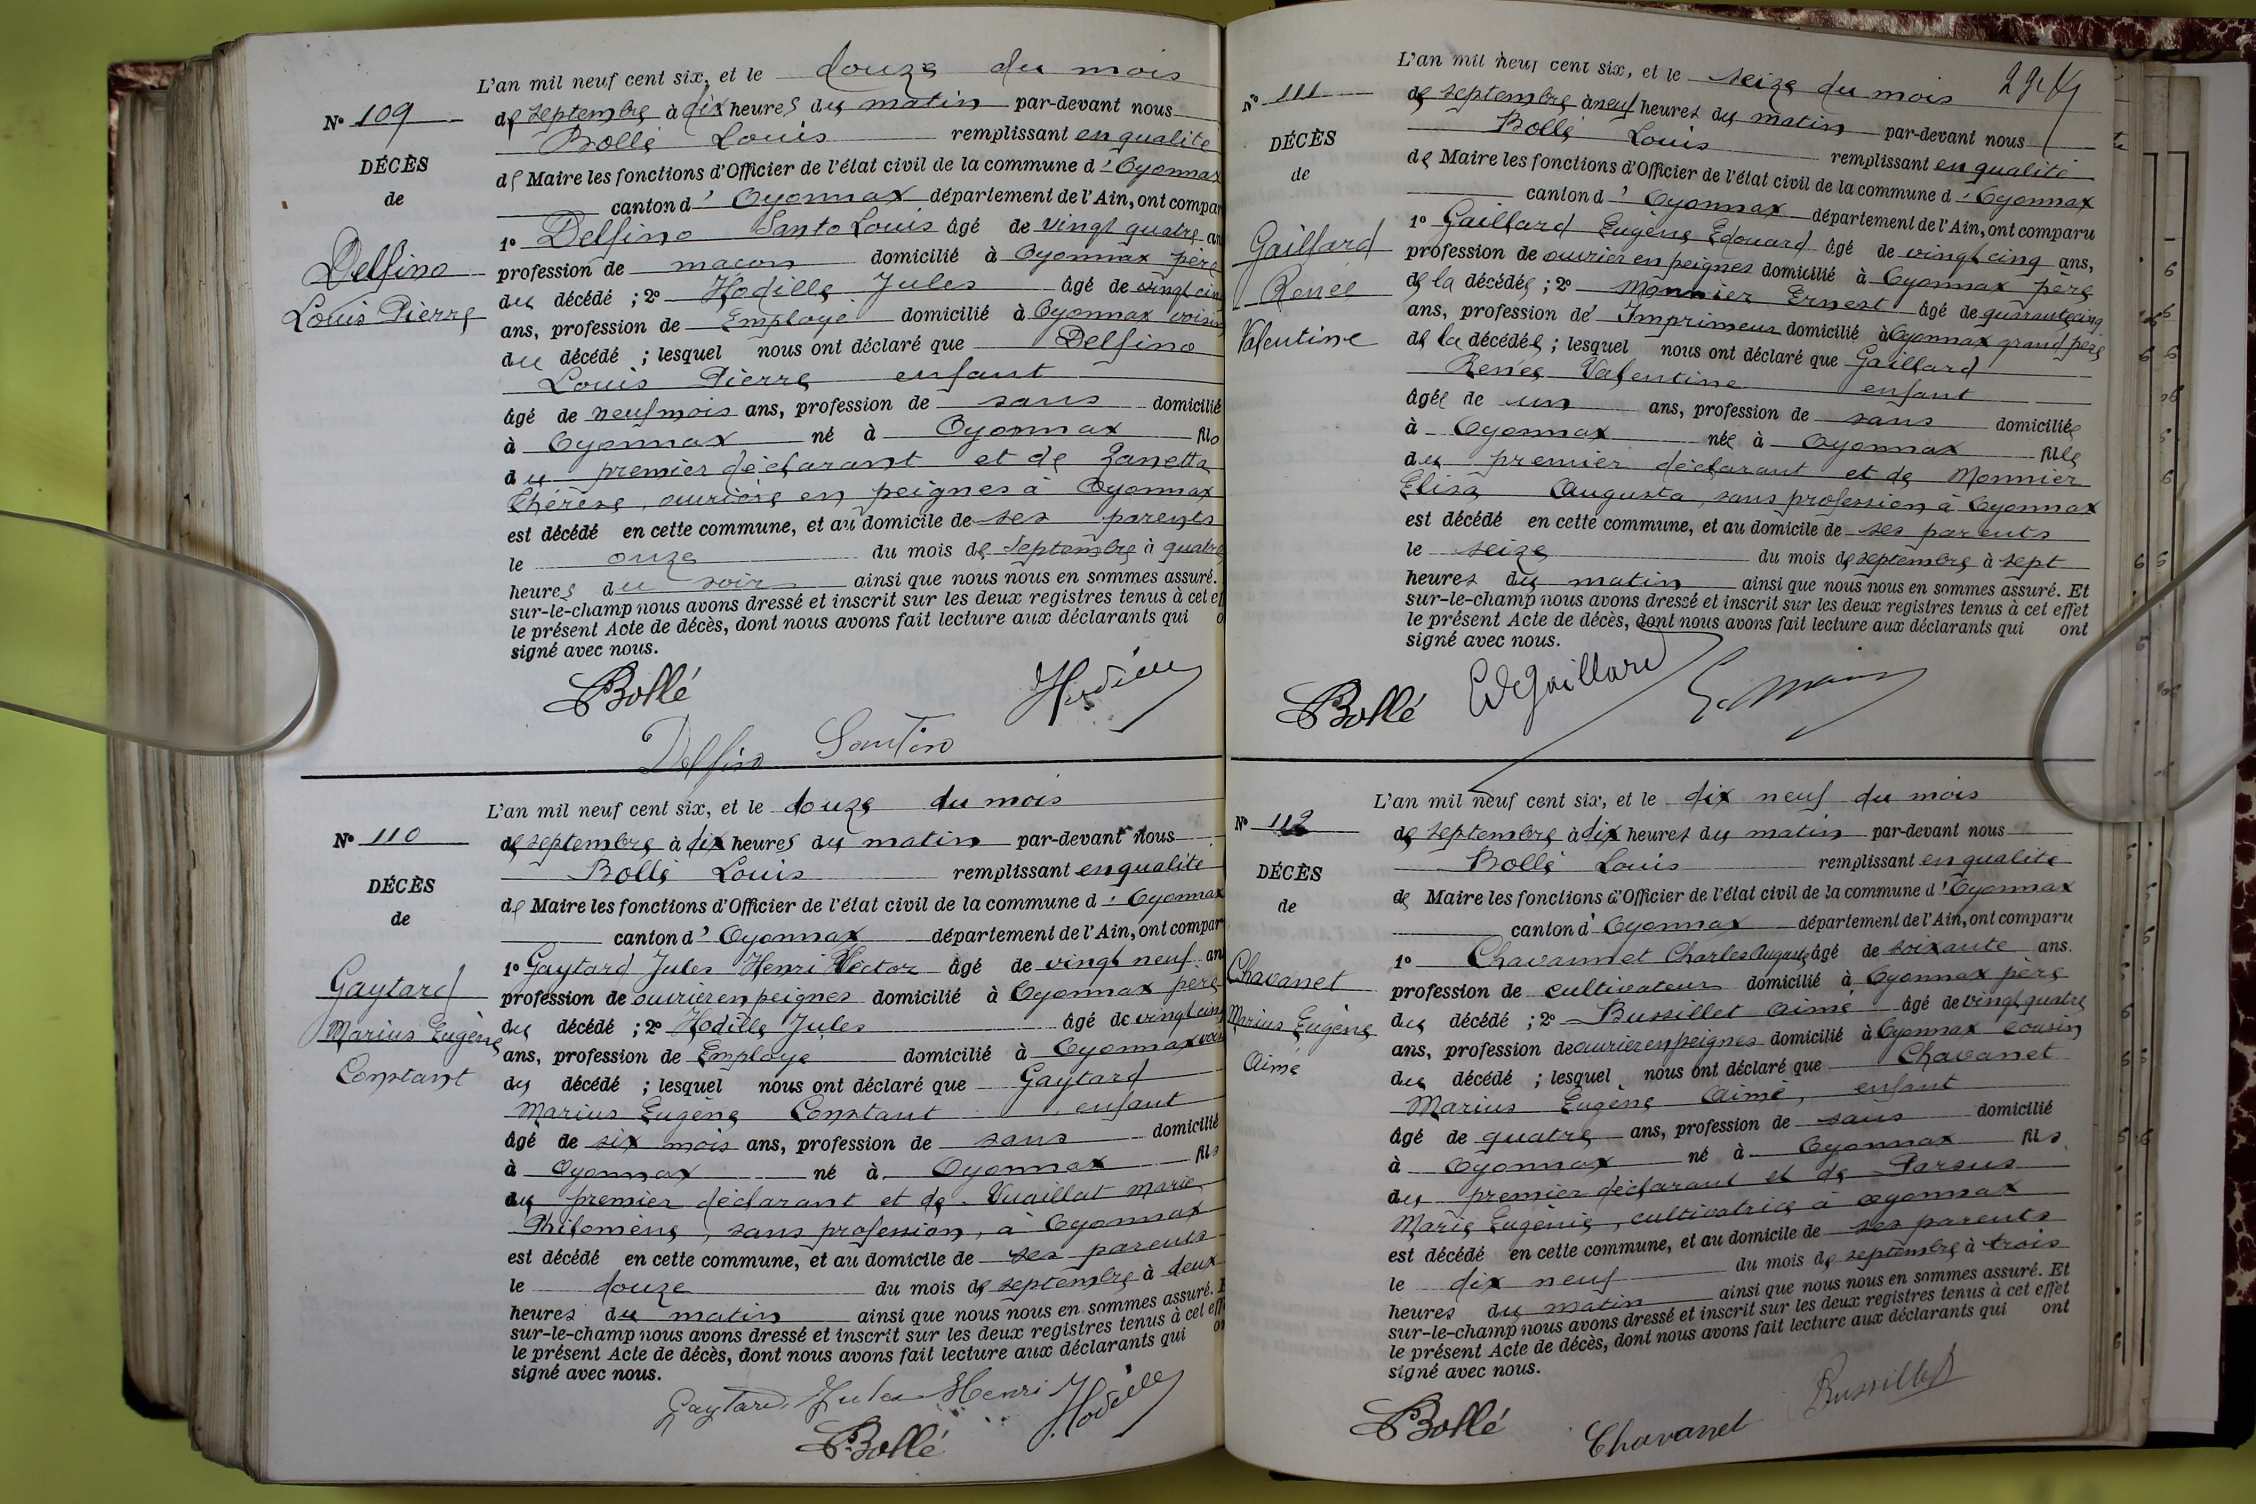 L'an mil neuf cent six, et le douze du mois
N° 109
de septembre à dix heures du matin par-devant nous
Bollé Louis remplissant en qualité
DÉCÈS
de Maire les fonctions d'Officier de l'état civil de la commune d'Oyonnax
de
canton d'Oyonnax département de l'Ain, ont compar
1° Delfino Santo Louis âgé de vingt quatre an
Delfino
profession de maçon domicilié à Oyonnax père
Louis Pierre
du décédé ; 2° Hodille Jules âgé de vingt cinq
ans, profession de Employé domicilié à Oyonnax voisin
du décédé ; lesquel nous ont déclaré que Delfino
Louis Pierre enfant
âgé de neuf mois ans, profession de sans domicilié
à Oyonnax né à Oyonnax fils
du premier déclarant et de Zanetta
Thérèse, ouvrière en peignes à Oyonnax
est décédé en cette commune, et au domicile de ses parents
le onze du mois de Septembre à quatre
heures du soir ainsi que nous nous en sommes assuré.
sur-le-champ nous avons dressé et inscrit sur les deux registres tenus à cet ef
le présent Acte de décès, dont nous avons fait lecture aux déclarants qui o
signé avec nous.
Bollé Hodille
Delfino Santino
L'an mil neuf cent six, et le douze du mois
N° 110
de septembre à dix heures du matin par-devant nous
Bollé Louis remplissant en qualité
DÉCÈS
de Maire les fonctions d'Officier de l'état civil de la commune d'Oyonnax
de
canton d'Oyonnax département de l'Ain, ont compar
1° Gaytard Jules Henri Victor âgé de vingt neuf an
Gaytard
profession de ouvrier en peignes domicilié à Oyonnax père
Marius Eugène
du décédé ; 2° Hodille Jules âgé de vingt cinq
ans, profession de Employé domicilié à Oyonnax vois
Constant
du décédé ; lesquel nous ont déclaré que Gaytard
Marius Eugène Constant enfant
âgé de six mois ans, profession de sans domicilié
à Oyonnax né à Oyonnax fils
du premier déclarant et de Vuaillat Marie
Philomène, sans profession, à Oyonnax
est décédé en cette commune, et au domicile de ses parents
le douze du mois de septembre à deux
heures du matin ainsi que nous nous en sommes assuré. E
sur-le-champ nous avons dressé et inscrit sur les deux registres tenus à cet eff
le présent Acte de décès, dont nous avons fait lecture aux déclarants qui on
signé avec nous.
Gaytard Jules Henri Hodille
Bollé
L'an mil neuf cent six, et le seize du mois
N° 111
de septembre à neuf heures du matin par-devant nous
Bollé Louis remplissant en qualité
DÉCÈS
de Maire les fonctions d'Officier de l'état civil de la commune d'Oyonnax
de
canton d'Oyonnax département de l'Ain, ont comparu
1° Gaillard Eugène Edouard âgé de vingt cinq ans,
Gaillard
profession de ouvrier en peignes domicilié à Oyonnax père
Renée
de la décédée ; 2° Monnier Ernest âgé de quarante cinq
ans, profession de Imprimeur domicilié à Oyonnax grand père
Valentine
de la décédée ; lesquel nous ont déclaré que Gaillard
Renée Valentine enfant
âgée de un ans, profession de sans domiciliée
à Oyonnax née à Oyonnax fille
du premier déclarant et de Monnier
Elisa Augusta, sans profession à Oyonnax
est décédé en cette commune, et au domicile de ses parents
le seize du mois de septembre à sept
heures du matin ainsi que nous nous en sommes assuré. Et
sur-le-champ nous avons dressé et inscrit sur les deux registres tenus à cet effet
le présent Acte de décès, dont nous avons fait lecture aux déclarants qui ont
signé avec nous.
Bollé Ed Gaillard
L'an mil neuf cent six, et le dix neuf du mois
N° 112
de septembre à dix heures du matin par-devant nous
Bollé Louis remplissant en qualité
DÉCÈS
de Maire les fonctions d'Officier de l'état civil de la commune d'Oyonnax
de
canton d'Oyonnax département de l'Ain, ont comparu
1° Chavannet Charles August âgé de soixante ans.
Chavanet
profession de cultivateur domicilié à Oyonnax père
Marius Eugène
du décédé ; 2° Bussillet Aimé âgé de vingt quatre
ans, profession de ouvrier en peignes domicilié à Oyonnax cousin
Aimé
du décédé ; lesquel nous ont déclaré que Chavanet
Marius Eugène Aimé, enfant
âgé de quatre ans, profession de sans domicilié
à Oyonnax né à Oyonnax fils
du premier déclarant et de Parsus
Marie Eugénie, cultivatrice à Oyonnax
est décédé en cette commune, et au domicile de ses parents
le dix neuf du mois de septembre à trois
heures du matin ainsi que nous nous en sommes assuré. Et
sur-le-champ nous avons dressé et inscrit sur les deux registres tenus à cet effet
le présent Acte de décès, dont nous avons fait lecture aux déclarants qui ont
signé avec nous.
Bollé Chavanet Bussillet